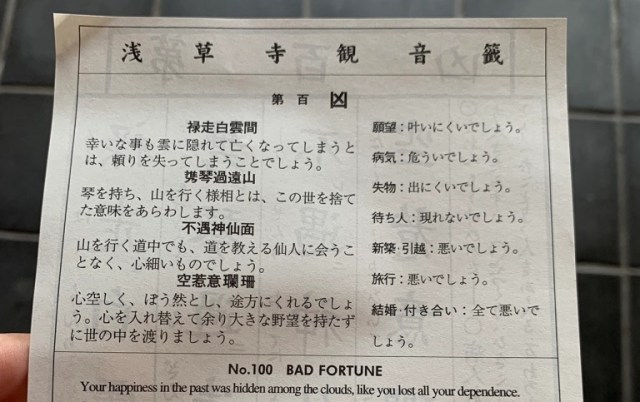 浅草寺観音籤
第百 凶
禄走白雲間
幸いな事も雲に隠れて亡くなってしまうと
は、頼りを失ってしまうことでしょう。
携琴過遠山
琴を持ち、山を行く様相とは、この世を捨て
た意味をあらわします。
不遇神仙面
山を行く道中でも、道を教える仙人に会うこ
となく、心細いものでしょう。
空惹意瓓珊
心空しく、ぼう然とし、途方にくれるでしょ
う。心を入れ替えて余り大きな野望を持たず
に世の中を渡りましょう。
願望：叶いにくいでしょう。
病気：危ういでしょう。
失物：出にくいでしょう。
待ち人：現れないでしょう。
新築･引越：悪いでしょう。
旅行：悪いでしょう。
結婚･付き合い：全て悪いで
しょう。
No.100 BAD FORTUNE
Your happiness in the past was hidden among the clouds, like you lost all your dependence.